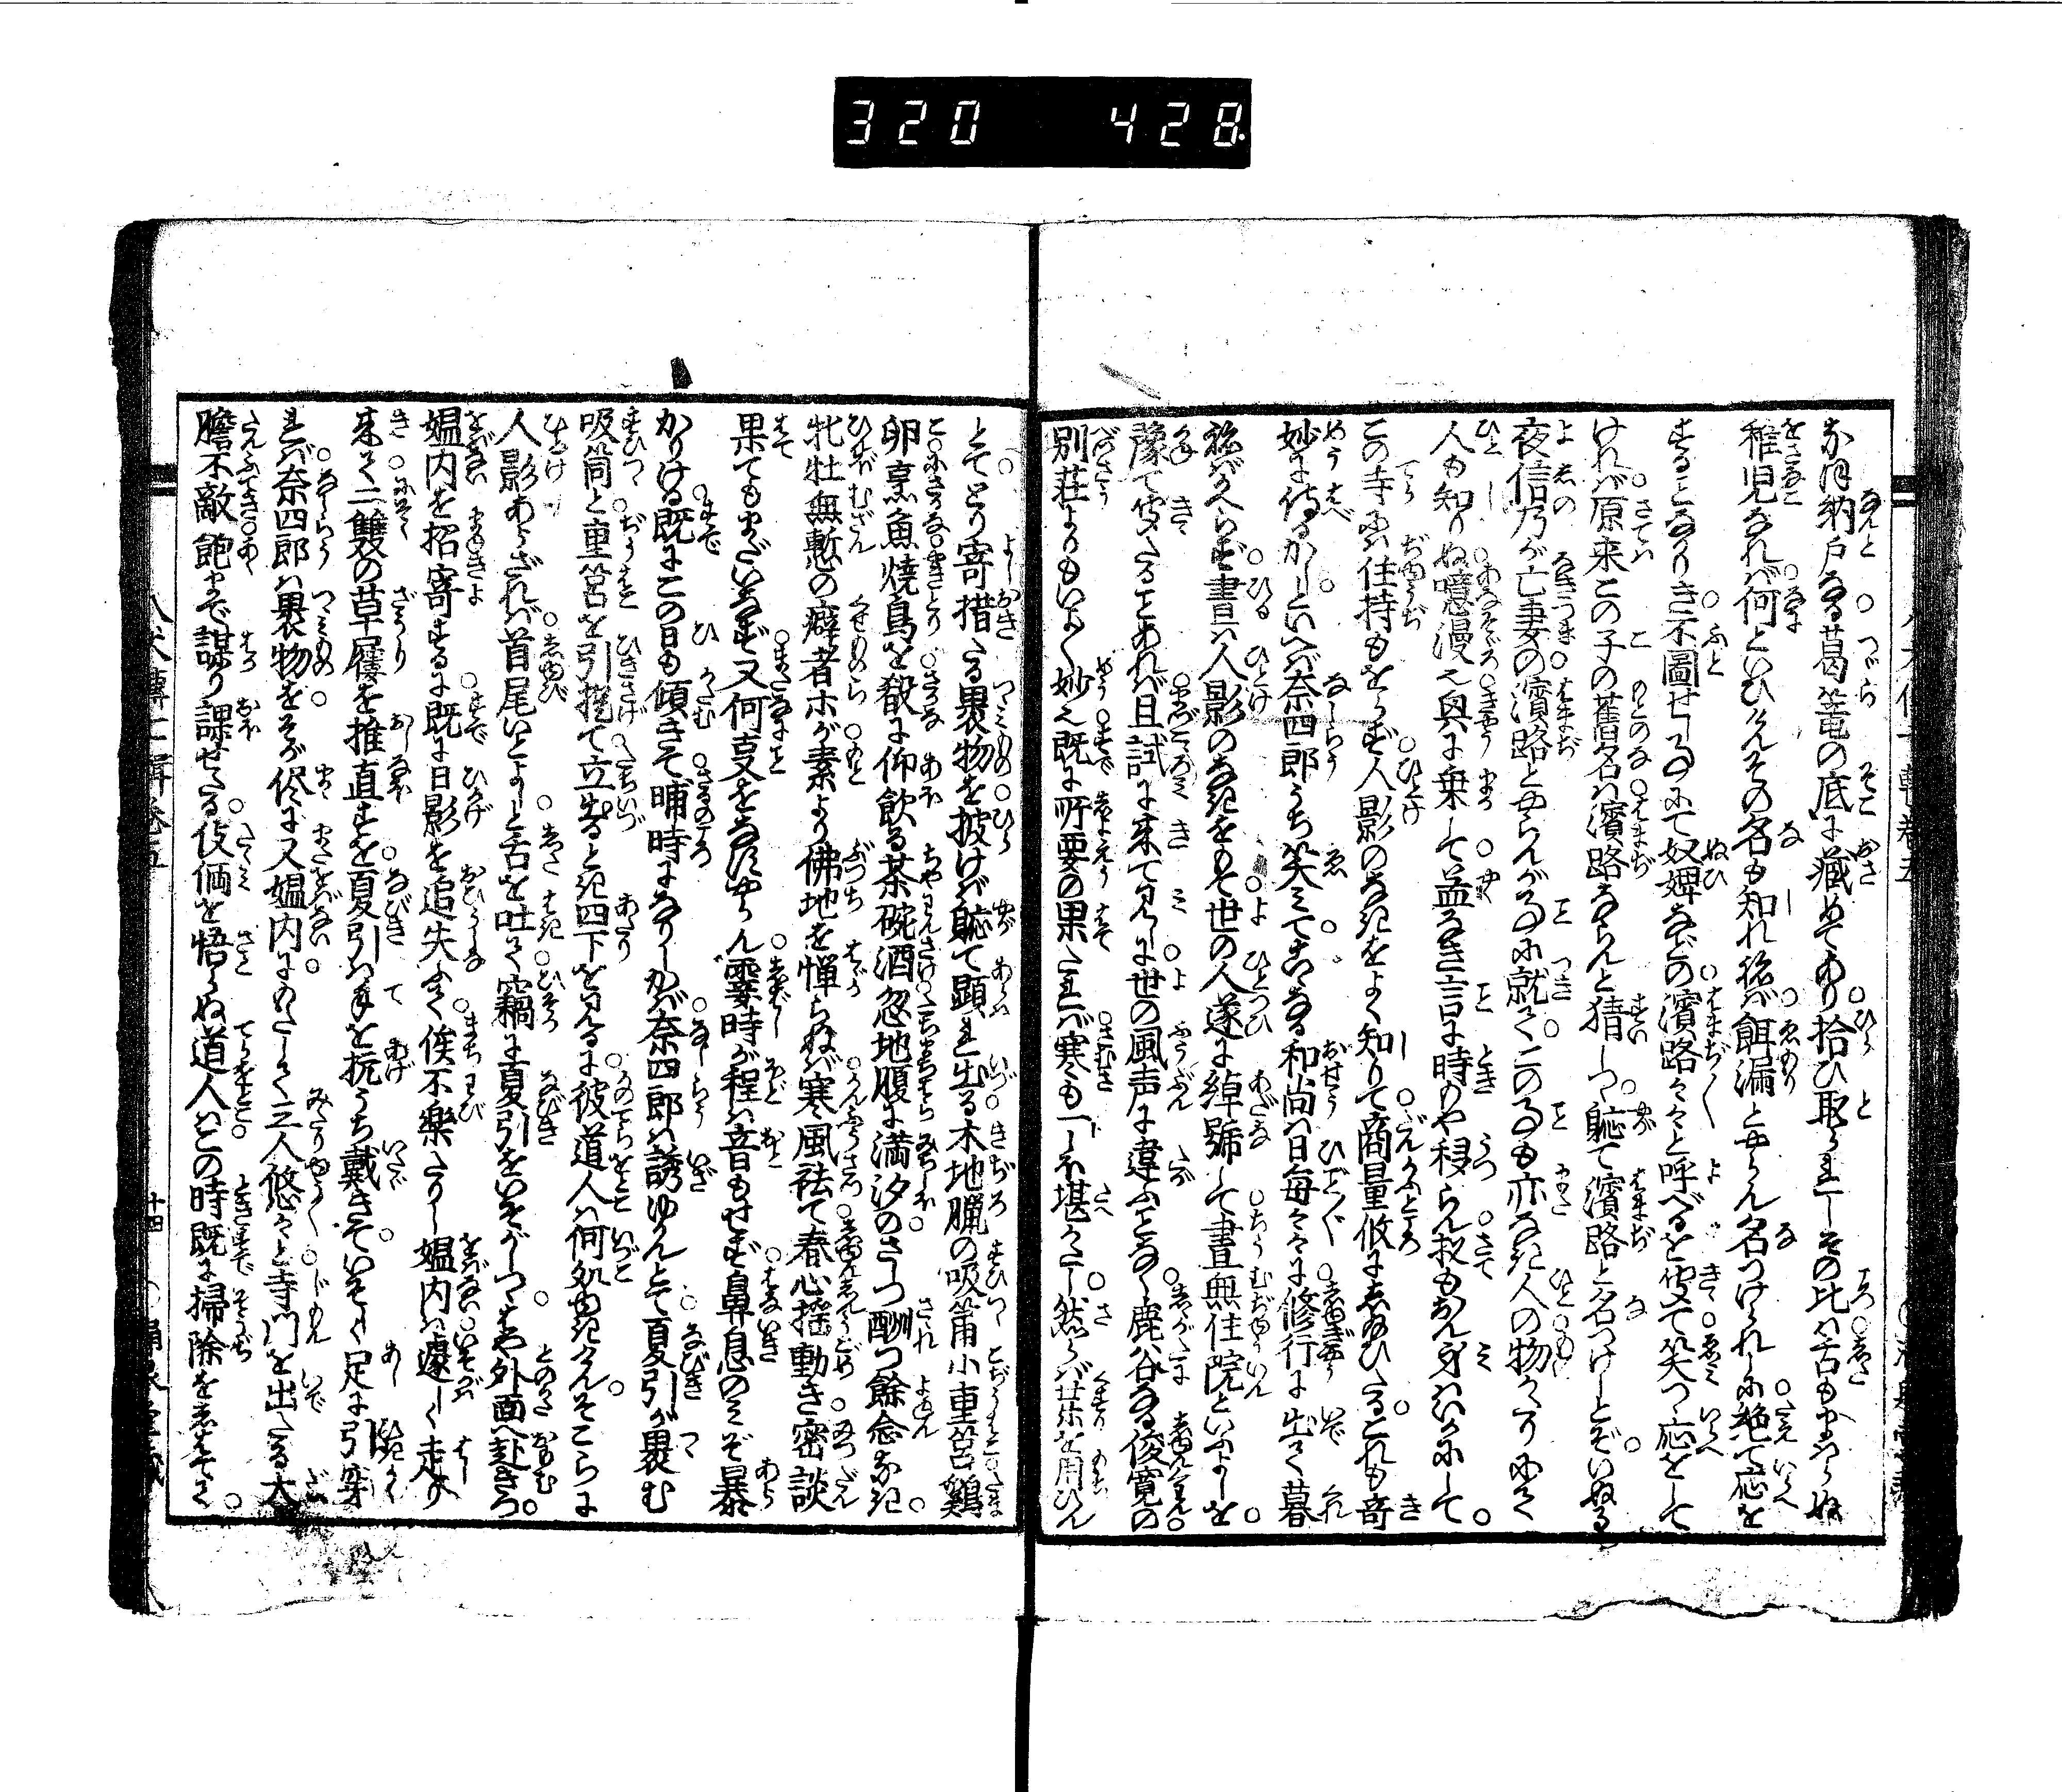 320 428
なほ納戸なる葛篭の底に藏めてあり拾ひ取られしその比は舌もまはらぬ
稚児なれば何といひけんその名も知れねば餌漏とやらん名つけられしに絶て応を
することなかりき不圖せし事にて奴婢などの濱路々々と呼べるを聞て笑つゝ応をして
ければ原来この子の舊名は濱路ならんと猜しつ軈て濱路と名つけしとぞいぬる
夜信乃が亡妻の濱路とやらんが事に就てこの事も亦なき人の物かたりにて
人も知りぬ噫漫也興に乗して益なき言に時や移らん叔もおん身はいかにして
この寺に住持もをらず人影のなきをよく知りて商量做にしたまひたるこれも奇
妙に侍るかしといへば奈四郎うち笑みてこゝなる和尚は日毎々々に修行に出て暮
ねばかへらず晝は人影のなきをもて世の人遂に綽號して晝無住院といふよしを
豫て聞たることあれば且試に来て見しに世の風声に違ふことなく鹿谷なる俊寛の
別荘よりもいとよく妙也既に所要の果たれば寒も一しほ堪かたし然らば薬を用ひん
とてとり寄措たる裹物を披けば軈て顕れ出る木地臘の吸筩小重筥鷄
卵烹魚燒鳥を殽に仰飲る茶碗酒忽地腹に満汐のさしつ酬つ餘念なき
牝牡無慙の癖者ホが素より佛地を憚らぬば寒風祛て春心揺動き密談
果てもまだいなず又何事をなすやらん霎時が程は音もせず鼻息のみぞ暴
かりける既にこの日も傾きて晡時になりしかば奈四郎は誘ゆかんとて夏引が裹む
吸筩と重筥を引提て立出るとき四下を見るに彼道人は何処ゆきけんそこらに
人影あらざれば首尾いとよしと舌を吐て竊に夏引をいそがしつゝはや外面へ赴きつ
媼内を招寄するに既に日影を追失ふて俟不樂たりし媼内は遽しく走り
来て二雙の草履を推直すを夏引は手を抗うち戴きていそしく足に引穿
れば奈四郎は裹物をそが侭に又媼内にわたして三人悠々と寺門を出たる大
膽不敵飽まで謀り課せたる伎倆を悟らぬ道人はこの時既に掃除をはてゝ
十四